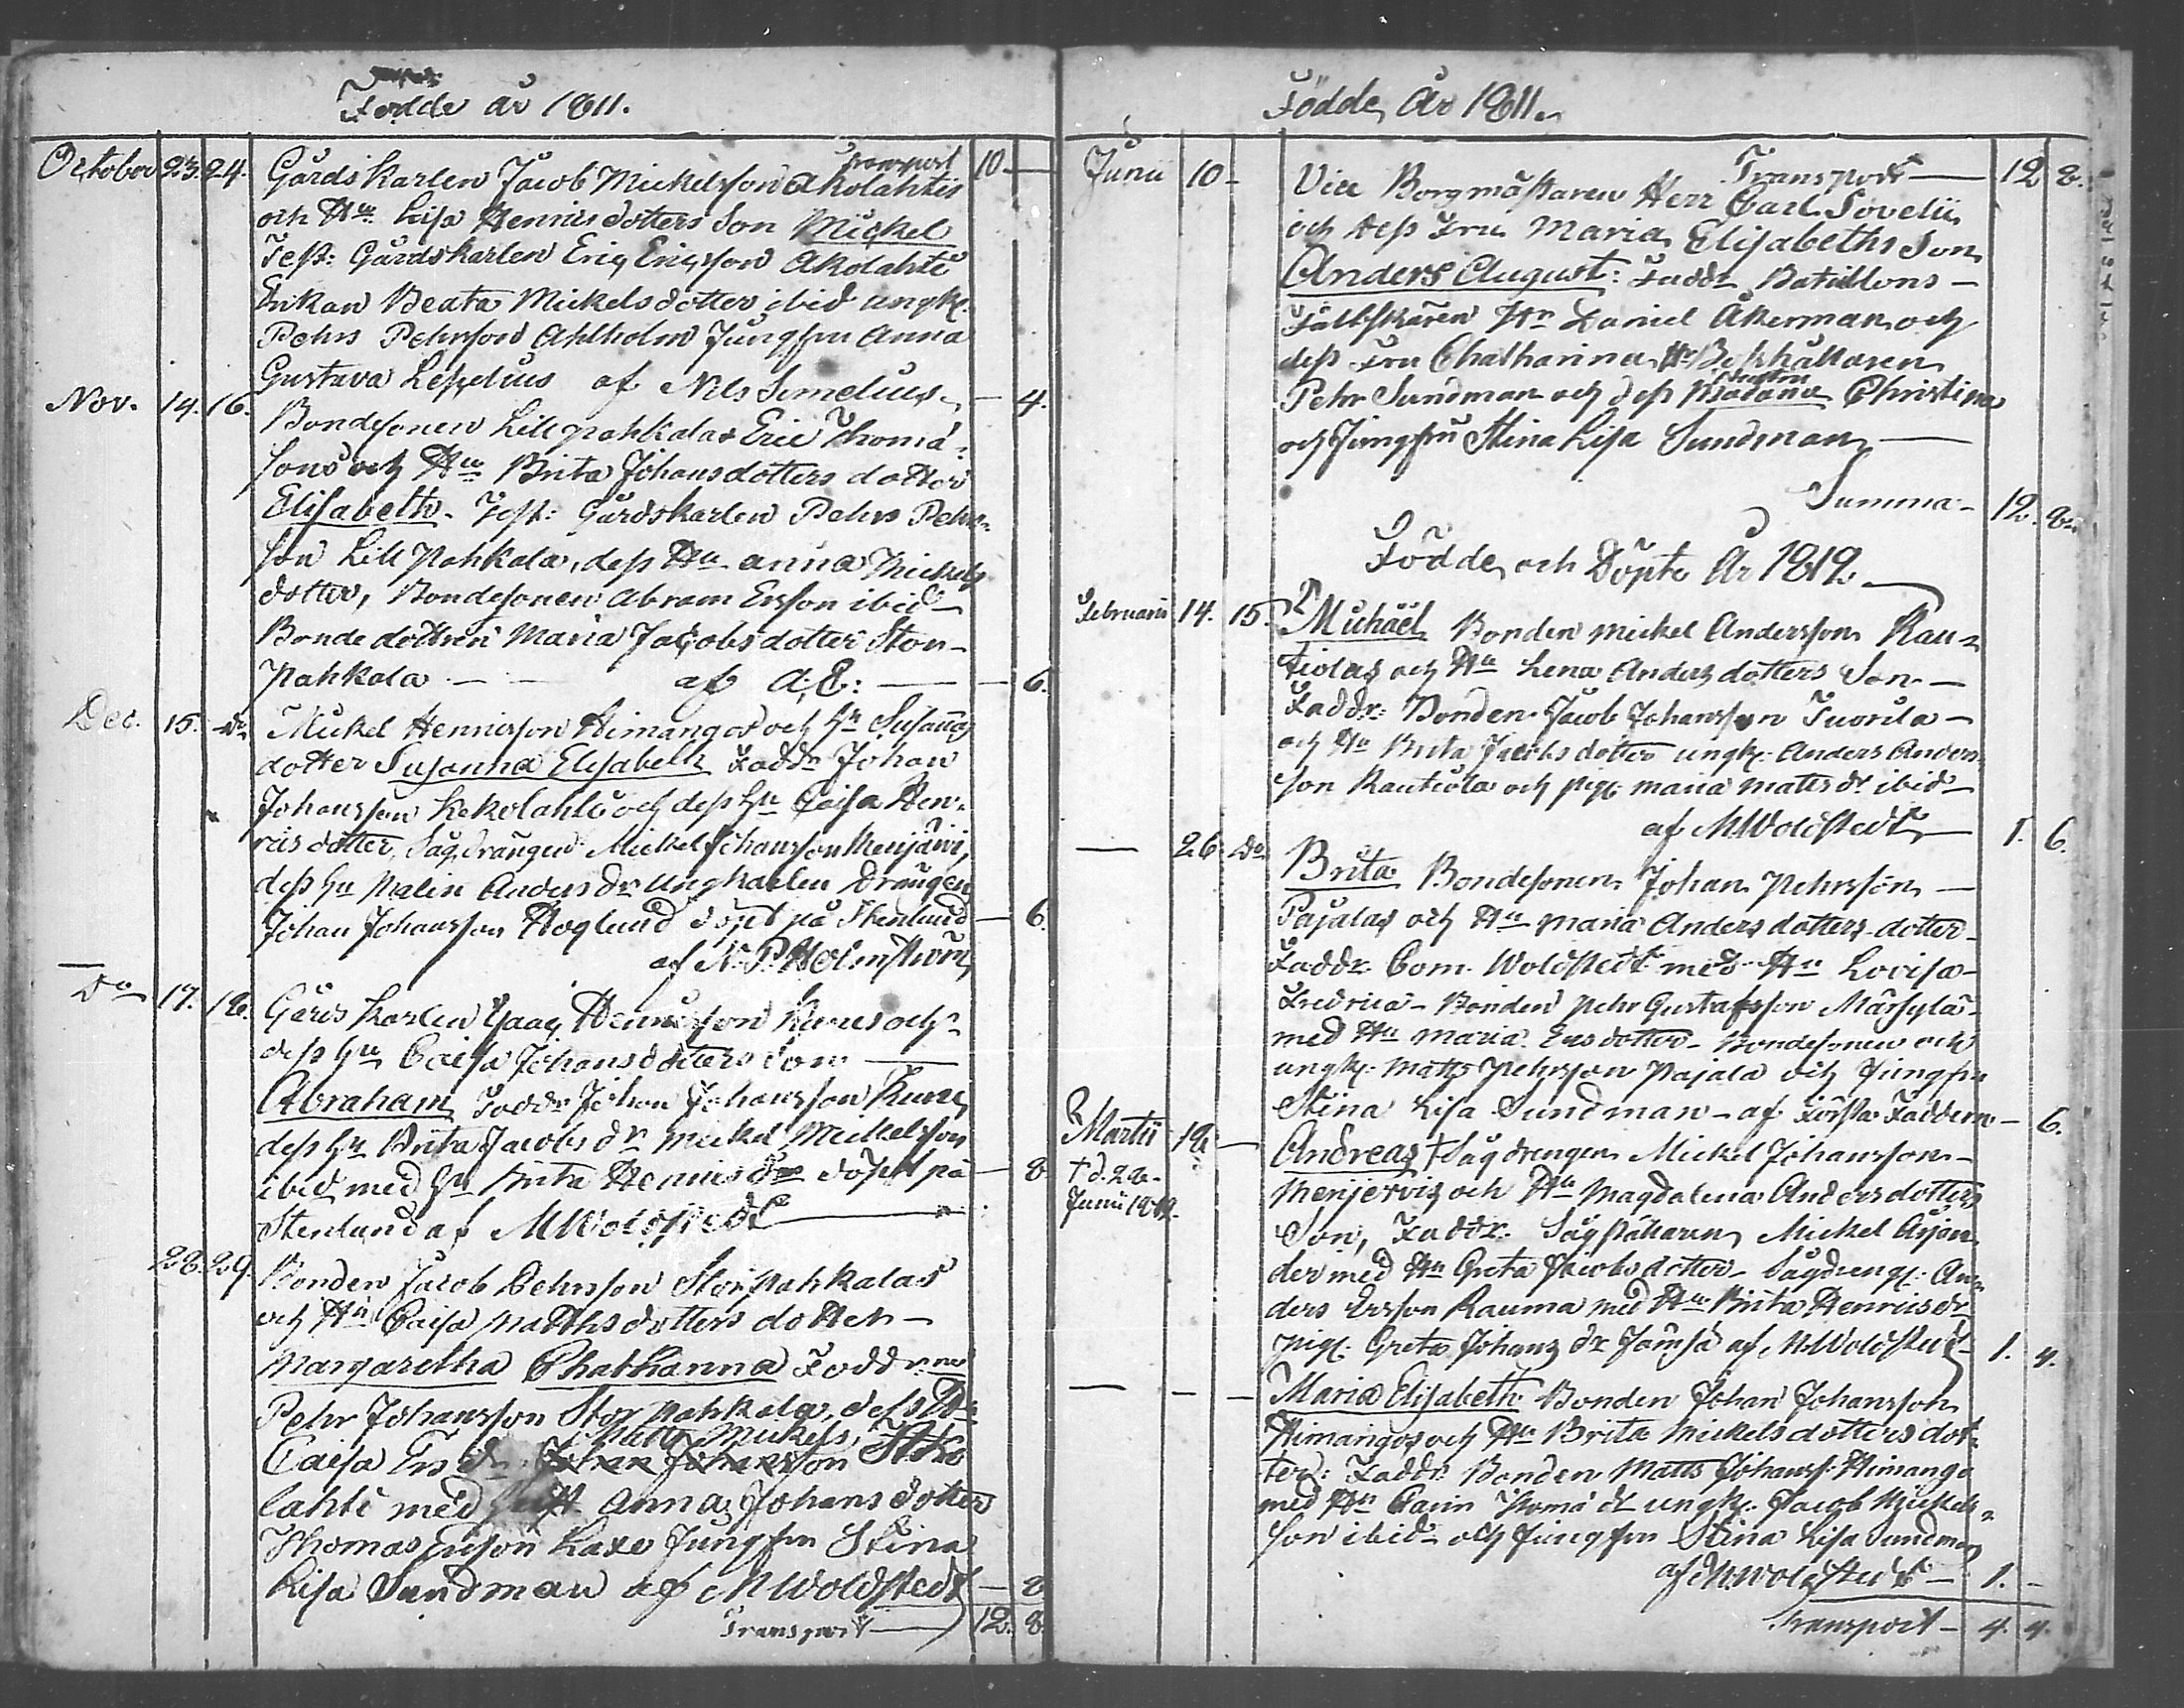 Födde år 1811.
Transport 10 —
October 23. 24. Gårdskarlen Jacob Mickelsson Akolahtis
och Hu Lisa Henricsdotters Son Mickel
Test: Gårdskarlen Eric Ericsson Akolahti
Enkan Beata Mickelsdotter ibid ungk.
Pehrs Pehrsson Ahlholm Jungfru Anna
Gustava Lepelius af Nils Simelius — 4.
Nov. 14. 16. Bondesonen Lillpahkalas Eric Thomæ-
sons och Hu Brita Johansdotters dotter
Elisabeth. Test: Gårdskarlen Pehrs Pehrs-
son Lillpahkala, dess Hu anna Mickels
dotter, Bondesonen Abram Ersson ibid
Bonde dottren Maria Jacobsdotter Stor-
pahkala — — af A: E: — — 6.
Dec. 15. Do Mickel Henricsson Himangos och Hu Susannas
dotter Susanna Elisabeth Faddr Johan
Johansson Kekolahti och dess hu Caisa Hen-
ricsdotter, Sågdrängen Mickel Johansson Menjärvi,
dess hu Malin Anders dr Ungkarlen Drängen
Johan Johansson Höglund döpt på Stenlund — 6.
af N. P. Holmström
— Do 17. 18. Gårdskarlen Isaac Henricsson Kures och
dess hu Caisa Johansdotters Son —
Abraham Faddr Johan Johansson Kures
dess hu Brita Jacobs dr Mickel Mickelsson
ibid med hu Brita Henrics dr döpt på — 8
Stenlund af M Woldstedt —
28. 29. Bonden Jacob Pehrsson Storpahkalas
och Hu Caisa Matthsdotters dotter —
Margaretha Chatharina Faddr
Pehr Johansson Storpahkala, dess Hu
Matts Mickels,
Caisa Ers dr. Johan Johansson Ako
lahti med Anna Johansdotter
Thomas Ericson Kaxe Jungfru Stina
Lisa Sundman af M Woldstedt — 8
Transport — 12. 8.
Födde År 1811.
Transport — 12 8.
Junii 10 — Vice Borgmästaren Herr Carl Sovelii
och dess Fru Maria Elisabeths Son
Anders August: Faddr Bataillons —
Fältskären Hr Daniel Åkerman och
dess Fru Chatharina, Hr Bokhållaren
Pehr Sundman och dess Christina
och Jungfru Stina Lisa Sundman —
Summa — 12. 8.
Födde och Döpte År 1812.
Februarii 14. 15. Michaël Bonden Mickel Andersson Rau-
tiolas och Hu Lena Anders dotters Son —
Faddr: Bonden Jacob Johansson Tuorila —
och Hu Brita Jacobs dotter ungk. Anders Anders-
son Rautiola och pig. maria matts dr ibid —
af M Woldstedt — 1. 6.
— 26. Do Brita Bondesonen Johan Pehrsson —
Pajalas och Hu maria Anders dotters dotter —
Faddr. Com. Woldstedt med Hu Lovisa —
Fredrica — Bonden Pehr Gustafsson Märsylä —
med Hu maria Ersdotter — Bondesonen och
ungk. Matts Pehrsson Pajala och Jungfru
Stina Lisa Sundman — af Första Faddern — 6.
Martii 18 — Andreas † Sågdrengen Mickel Johansson —
† d. 28. Menjervis och Hu Magdalena Anders dotters
Junii 1812. Son, Faddr: Sågställaren Mickel Aijan-
der med Hu Greta Jacobs dotter — Sågdreng. An-
ders Ersson Rauma med Hu Brita Henrics dr
pig. Greta Johans dr Jämsä af M Woldstedt — 1. 4.
— — — Maria Elisabeth Bonden Johan Johansson
Himangos och Hu Brita Mickelsdotters dot-
ter: Faddr: Bonden Matts Johanss. Himango
med Hu Carin Thomæ dr ungk. Jacob Mickels-
son ibid — och Jungfru Stina Lisa Sundman
af M Woldstedt — 1. —
Transport — 4. 4.